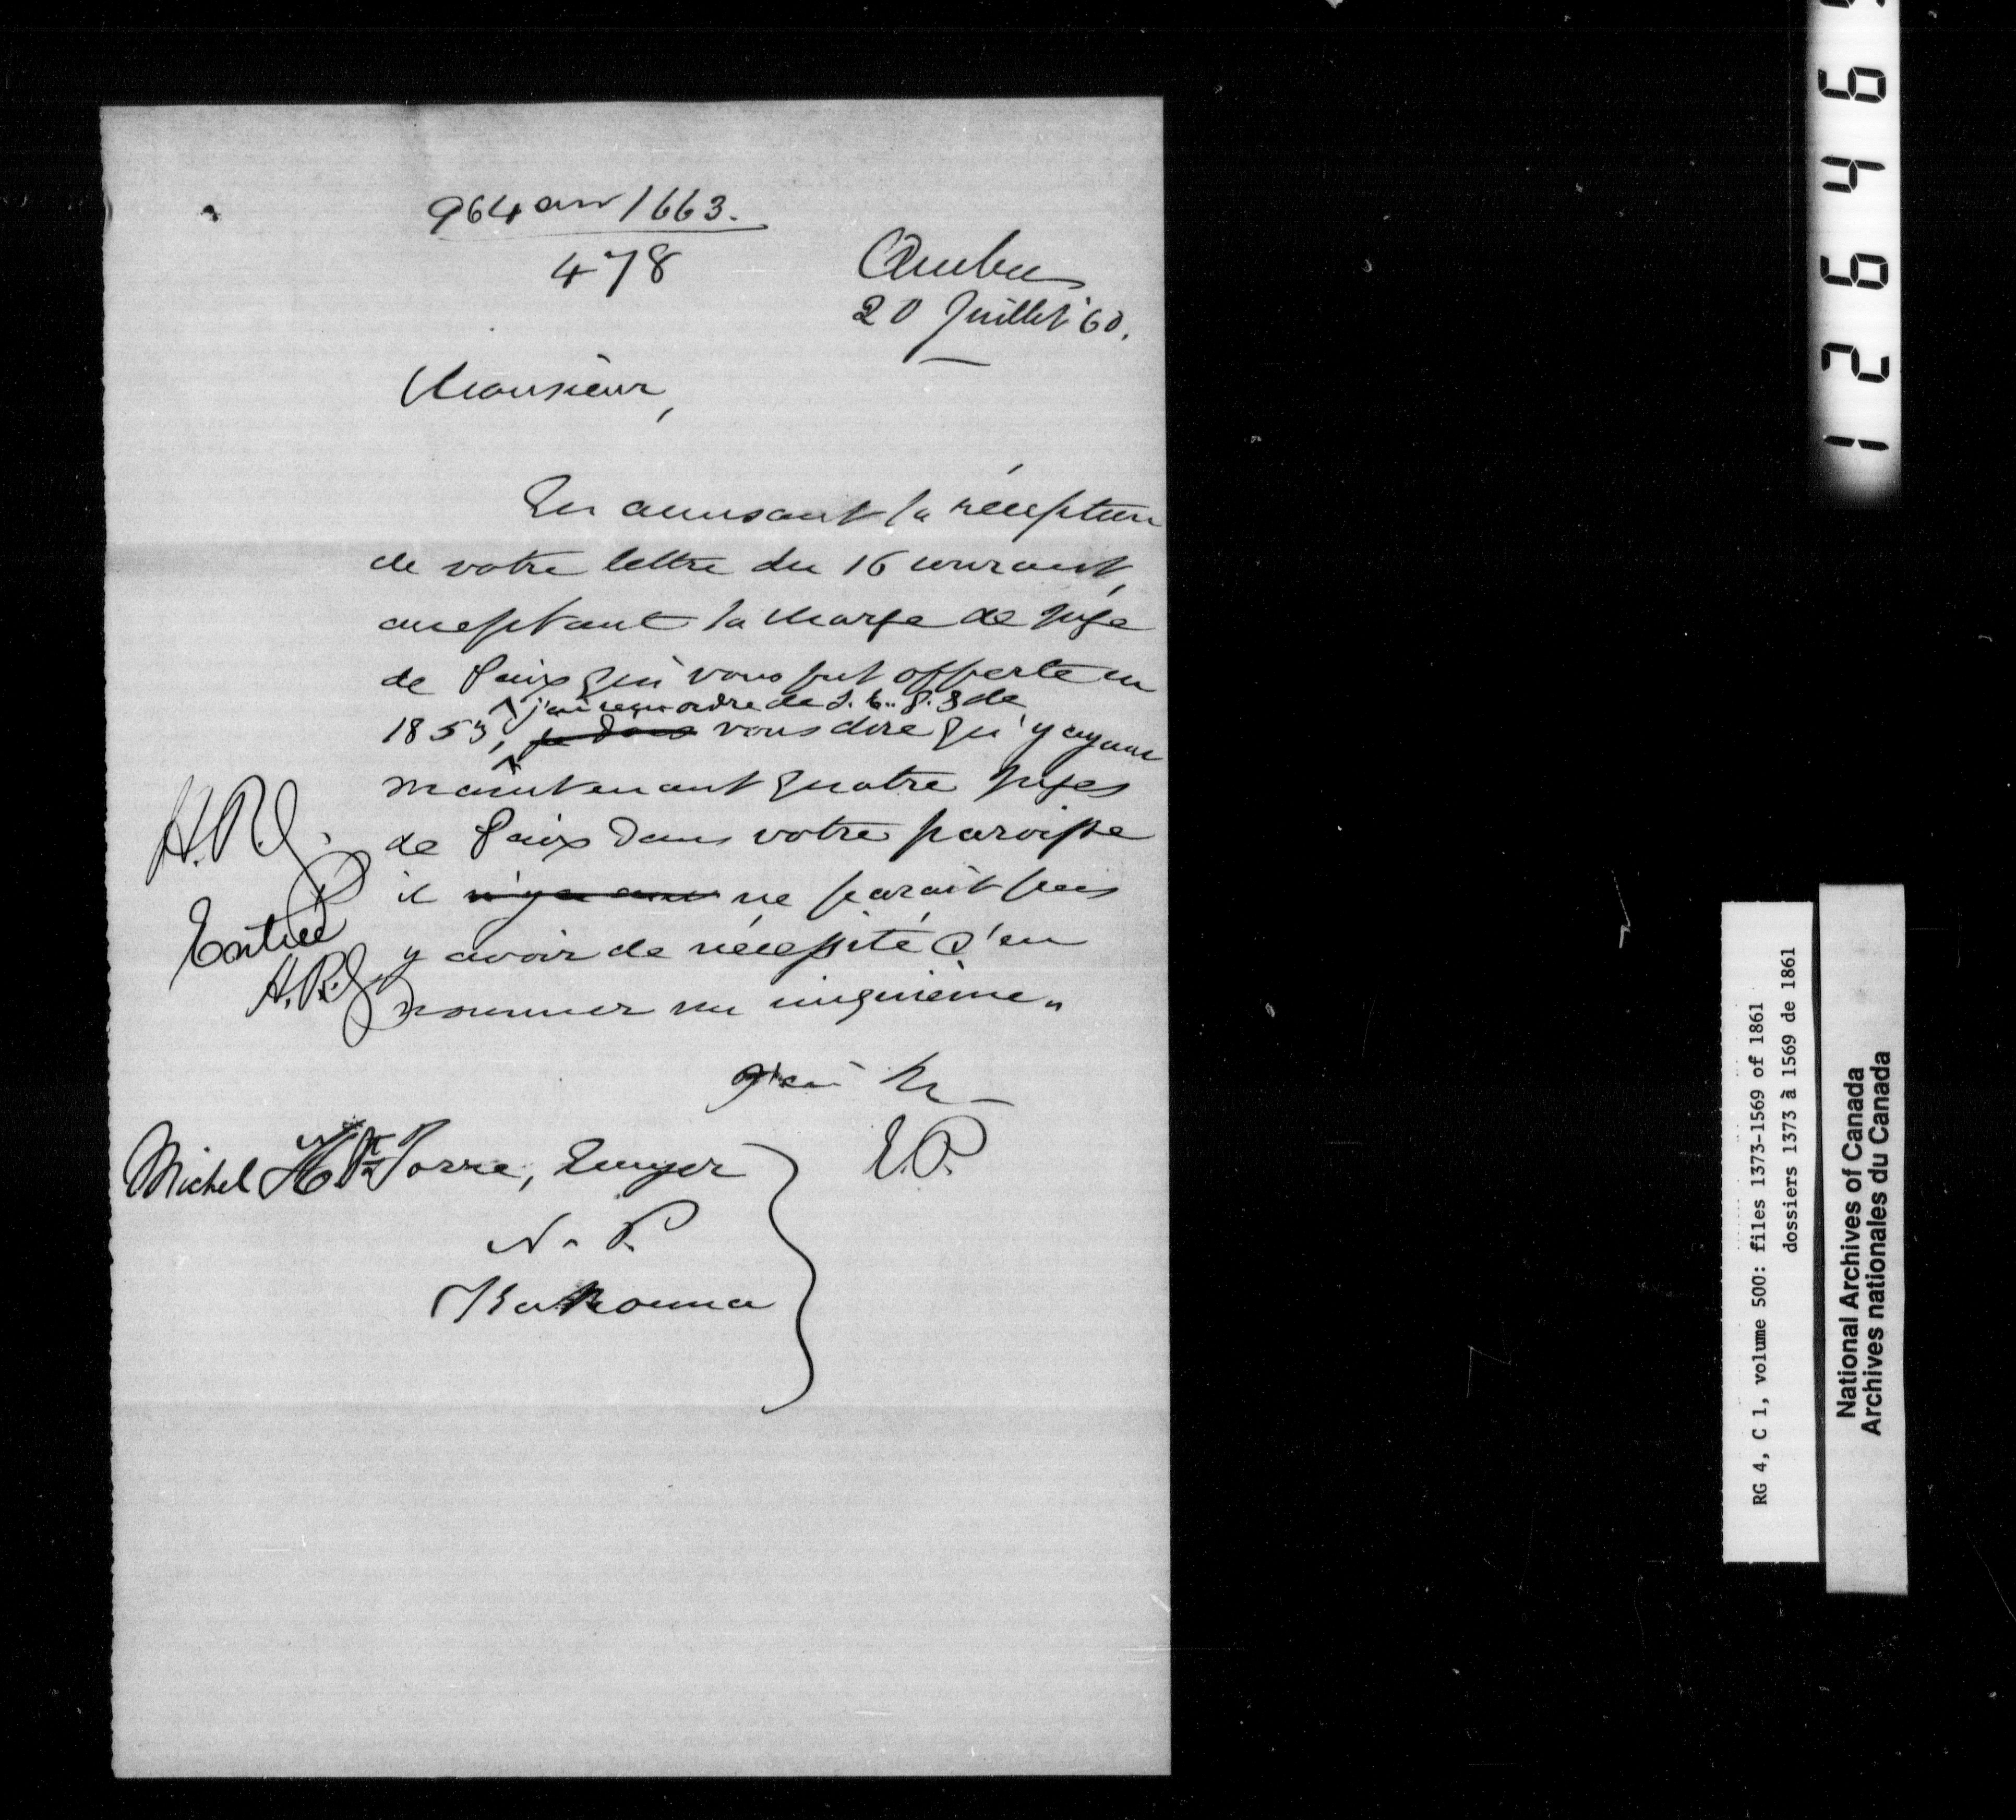 964 on 1663.
478
Québec
20 Juillet '60.
Monsieur,
En accusant la réception
de votre lettre du 16 courant,
acceptant la charge de Juge
de Paix qui vous fut offerte en
j'ai reçu ordre de S. E. G. G de
1853, je dois vous dire qu'y ayant
maintenant quatre Juges
de Paix dans votre paroisse
il n'y a ne parait pas
y avoir de nécessité d'en
nommer un cinquième.
H.R.J.
Entrée
H.R.J.
J'ai
E.P.
Michel H. Ecuyer
N. P.
Kakouna
126465
RG 4, C 1, volume 500: files 1373-1569 of 1861
dossiers 1373 à 1569 de 1861
National Archives of Canada
Archives nationales du Canada